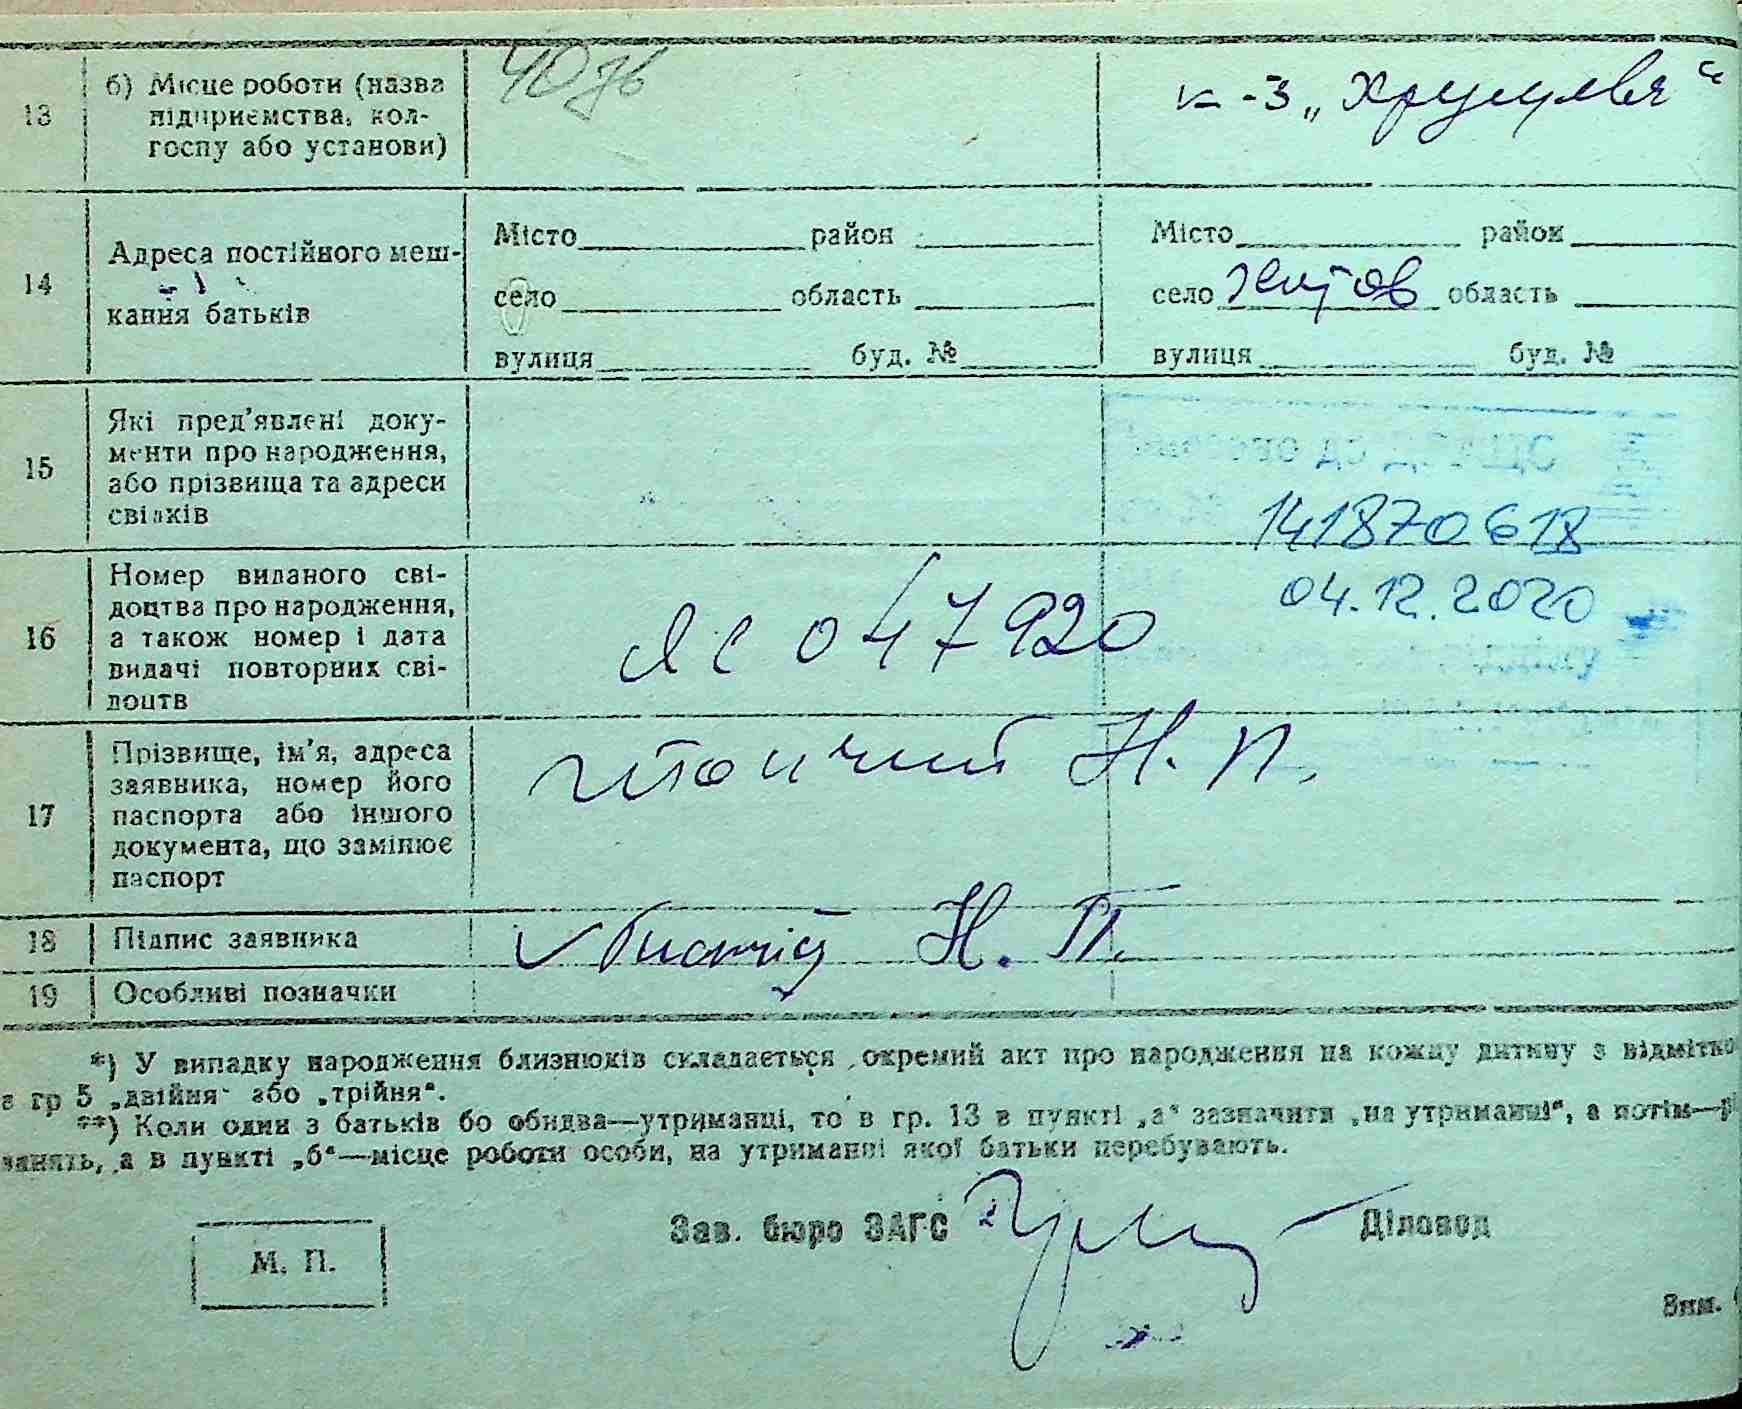 13
б) Місце роботи (назва
підприємства, кол-
госпу або установи)
к-з „Хрущева“
14
Адреса постійного меш-
кання батьків
Місто район
село область
вулиця буд. №
Місто район
село область
вулиця буд. №
15
Які пред'явлені доку-
менти про народження,
або прізвища та адреси
свідків
141870618
04.12.2020
16
Номер виданого сві-
доцтва про народження,
а також номер і дата
видачі повторних сві-
доцтв
047920
17
Прізвище, ім'я, адреса
заявника, номер його
паспорта або іншого
документа, що замінює
паспорт
Н. П.
18 Підпис заявника
Н. П.
19 Особливі позначки
*) У випадку народження близнюків складається окремий акт про народження на кожну дитину з відмітко
в гр 5 „двійня“ або „трійня“.
**) Коли один з батьків бо обидва—утриманці, то в гр. 13 в пункті „а“ зазначити „на утриманні“, а потім—р
занять, а в пункті „б“—місце роботи особи, на утриманні якої батьки перебувають.
Зав. бюро ЗАГС Діловод
М. П.
Зам.